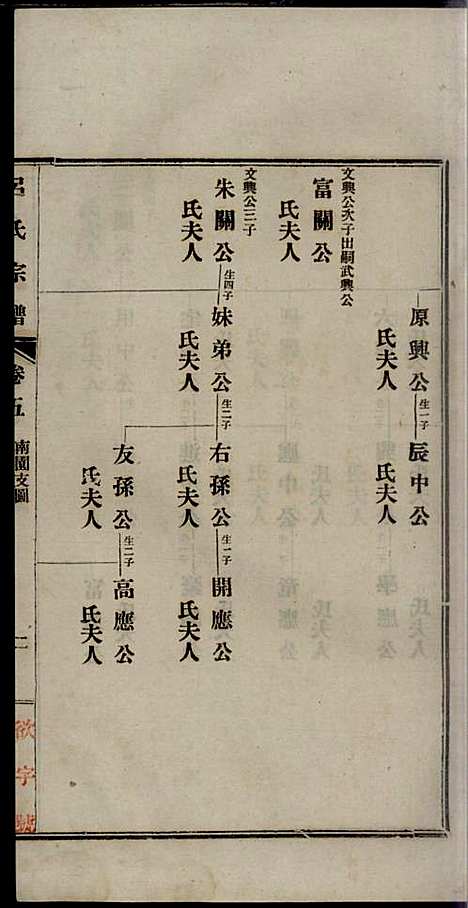 原興公生一子辰中公
氏夫人 氏夫人
文興公次子出嗣武興公
富關公
氏夫人
文興公三子
朱關公生四子妹弟公生二子右孫公生一子開應公
氏夫人 氏夫人 氏夫人 氏夫人
友孫公生二子高應公
氏夫人 氏夫人
呂氏宗譜 卷五 南園支圖 二 欲字號